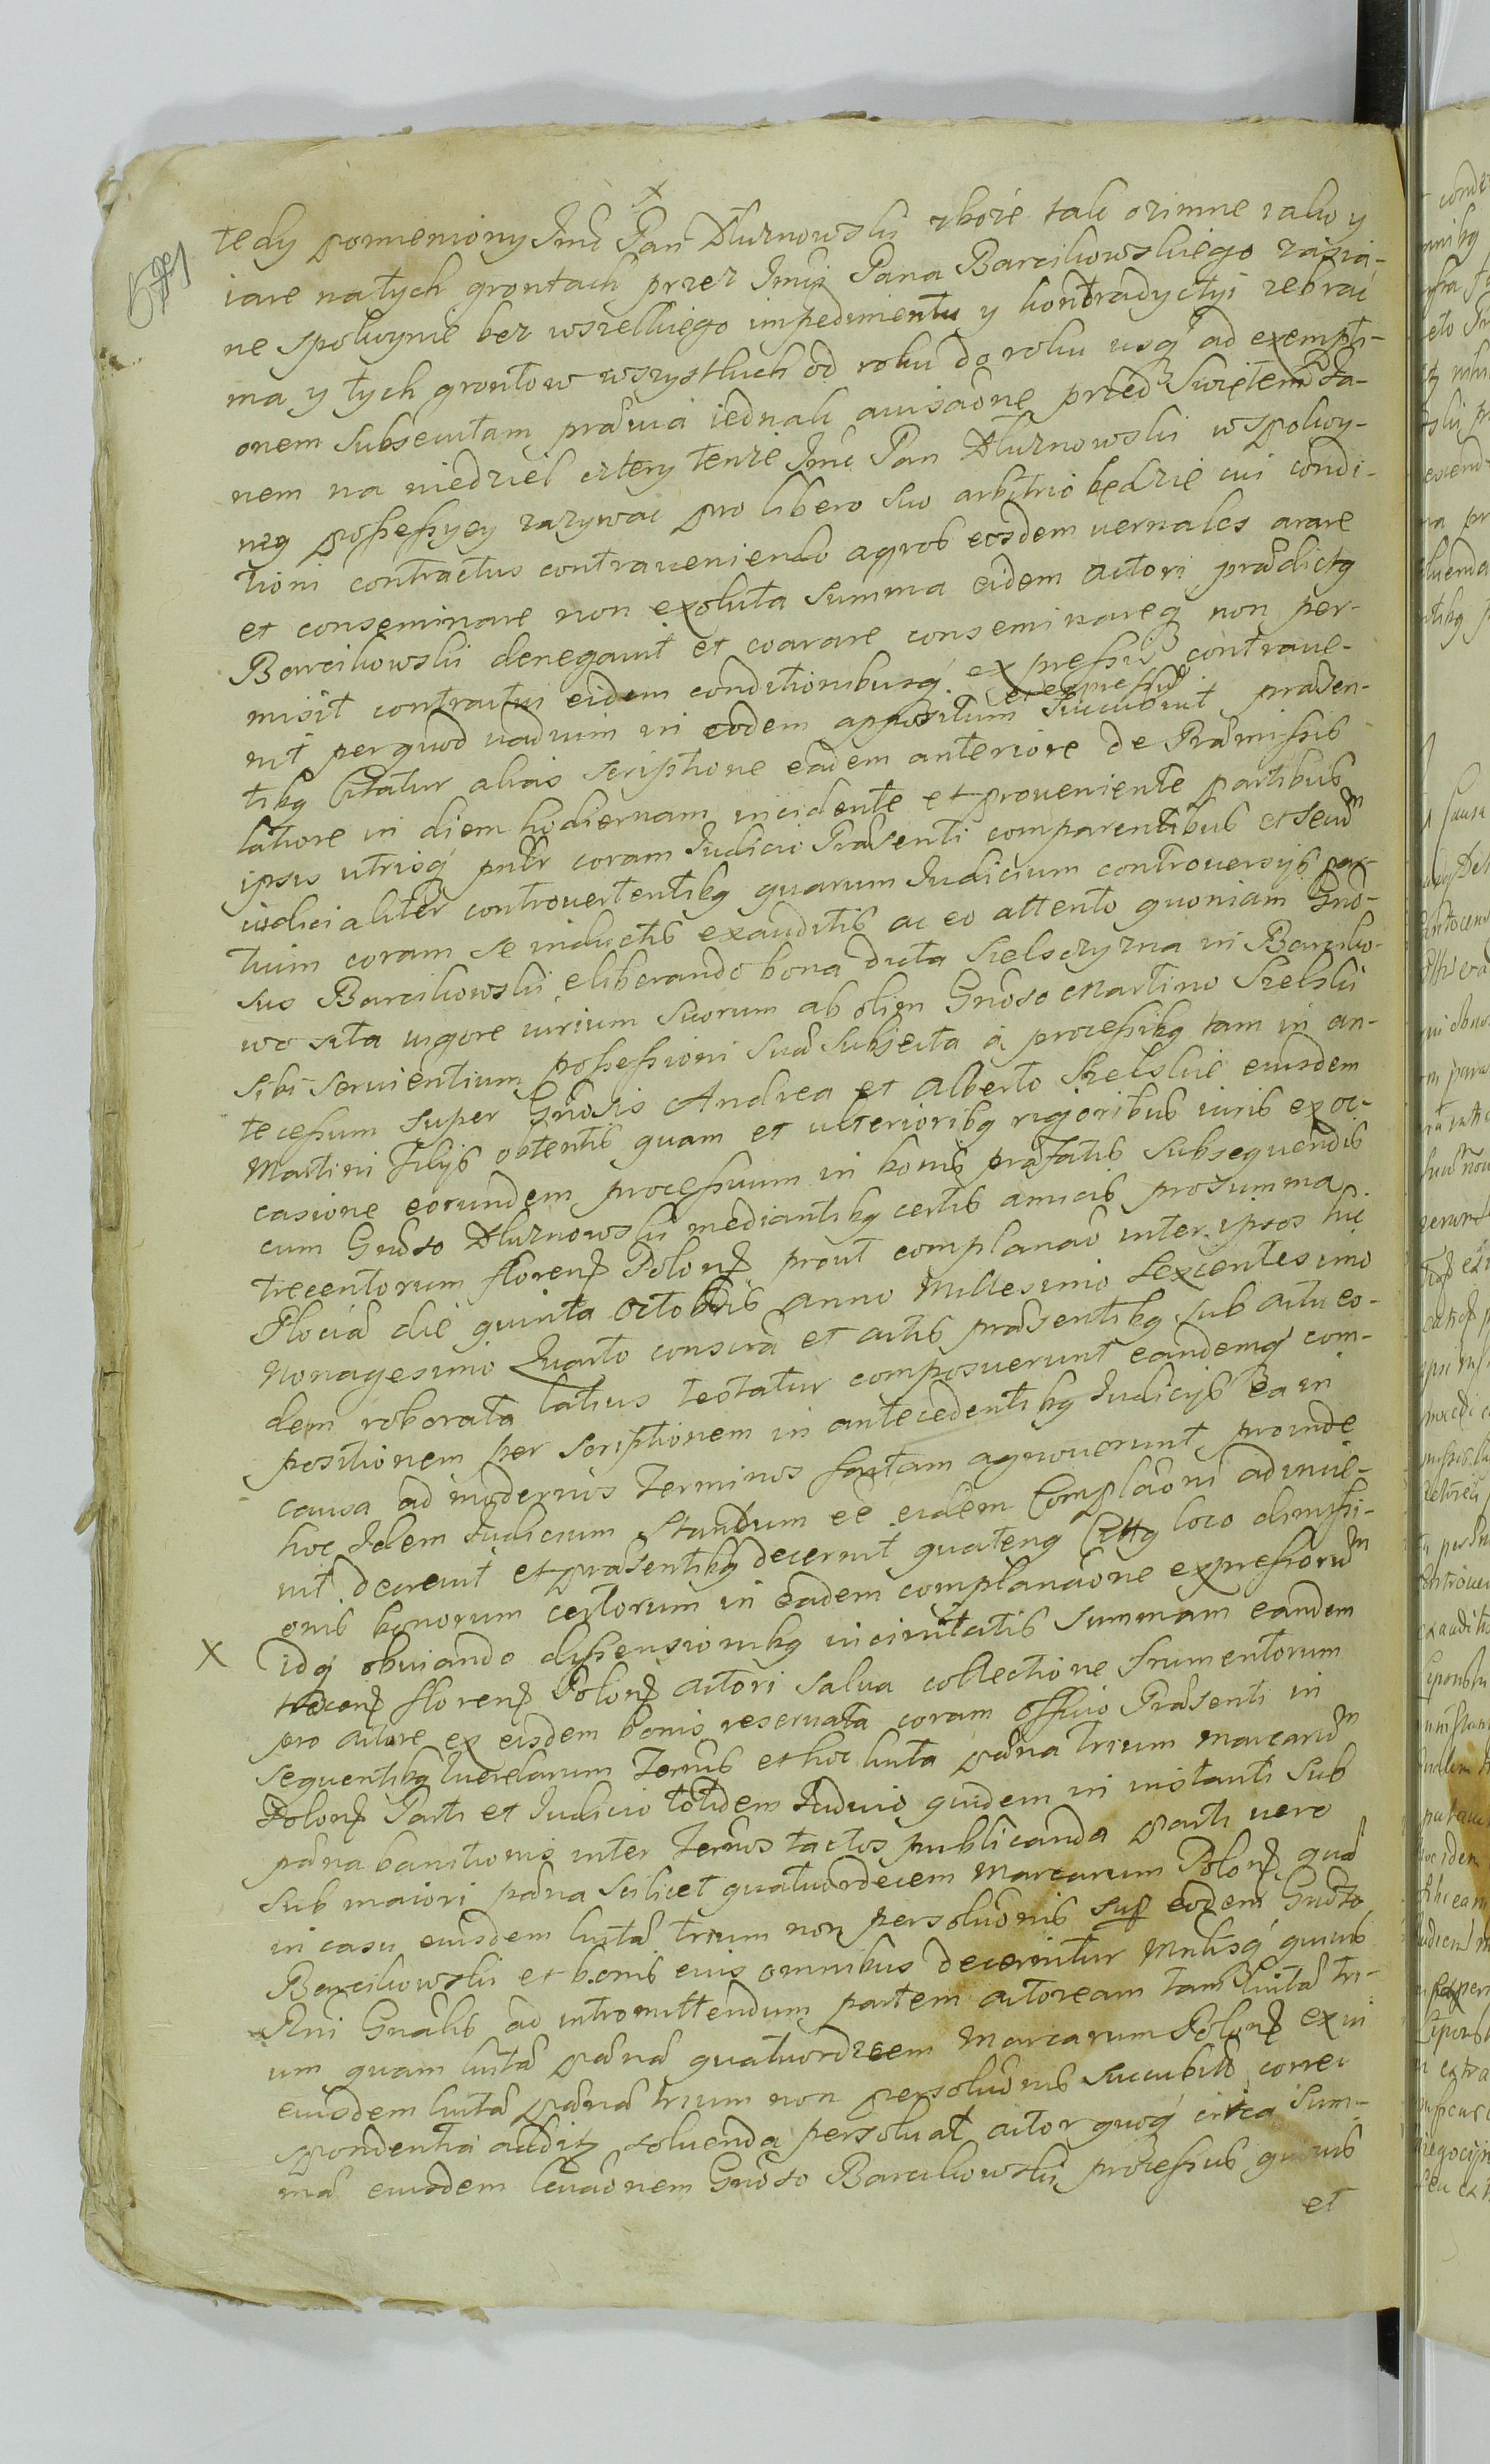 tedy pomieniony Jmć Pan Dłuznowski zboze tak ozimne iako y
iare na tych grontach przez Jmci Pana Barcikowskiego zasia-
ne spokoynie bez wszelkiego impedimentu y kontradyctyi zebrać
ma y tych grontow wszystkich od roku do roku usq ad exempti-
onem subsecutam prævia iednak avisaõne przed Swiętem Ja-
nem na niedziel cztery tenze Jmć Pan Dłuznowski w spokoy-
ney possessyey zazywać pro libero suo arbitrio będzie cui condi-
tioni contractus contraveniendo agros eosdem vernales arare
et conseminare non exoluta summa eidem actori prædictꝫ
Barcikowski denegavit et coarare conseminareq non per-
misit contractui eidem conditionibusq expressis contrave-
nit per quod vadium in eodem appositum et expressũ succubuit præsen-
tibꝫ citatur alias scriptione eadem anteriore de Præmissis
latiore in diem hodiernam incidente et proveniente partibus
ipsis utrisq pntr coram Judicio Præsenti comparentibus et secũ
iudicialiter controvertentibꝫ quarum Judicium controversijs par-
tium coram se inductis exauditis ac eo attento quoniam Gnõ-
sus Barcikowski eliberando bona dicta Szelsczyzna in Barciko-
wo sita vigore iurium suorum ab olim Gnõso Martino Szelski
sibi servientium possessioni suæ subjecta à processibꝫ tam in an-
tecessum super Gnõsis Andrea et Alberto Szelskie eiusdem
Martini filijs obtentis quam et ulterioribꝫ rigoribus iuris ex oc-
casione eorundem processuum in bonis præfatis subsequendis
cum Gnõso Dłuznowski mediantibꝫ certis amicis pro summa
trecentorum floren Polon prout complanaõ inter ipsos hic
Plociæ die quinta Octobris anno Millesimo Sexcentesimo
Nonagesimo Quarto conscrã et actis præsentibꝫ sub actu eo-
dem roborata latius testatur composuerunt eandemq com-
positionem per scriptionem in antecedentibꝫ Judicijs ea in
causa ad modernos Terminos factam agnoverunt proinde
hoc Idem Judicium standum eẽ eidem Complaõni advine-
nit decrevit et præsentibꝫ decernit quatenꝫ Cittꝫ loco dimissi-
onis bonorum certorum in eadem complanaõne expressorũ
X idq obviando dissensionibꝫ in civitatis summam eandem
trecen floren Polon actori salva collectione frumentorum
pro actore ex eisdem bonis reservata coram officio Præsenti in
sequentibꝫ querelarum Ternis et hoc luita pæna trium marcarũ
Polon Parti et Judicio totidem Judicio quidem in instanti sub
pæna banitionis inter Ternos tactos publicanda parti vero
sub maiori pæna scilicet quatuordecem marcarum Polon quæ
in casu eiusdem luitæ trium non persoluõnis sup eodem Gnõso
Barcikowski et bonis eius omnibus decernitur Mntrisq quivis
Rni Gnãlis ad intromittendum partem actoream tam luitæ tri-
um quam luitæ pænæ quatuordecem Marcarum Polon ex in
eiusdem luitæ pænæ trium non persoluõnis succubitæ corre-
spondentia additꝫ soluenda persoluat actor quoq circa sum-
mæ eiusdem levaõnem Gnõso Barcikowski processus quosvis
et